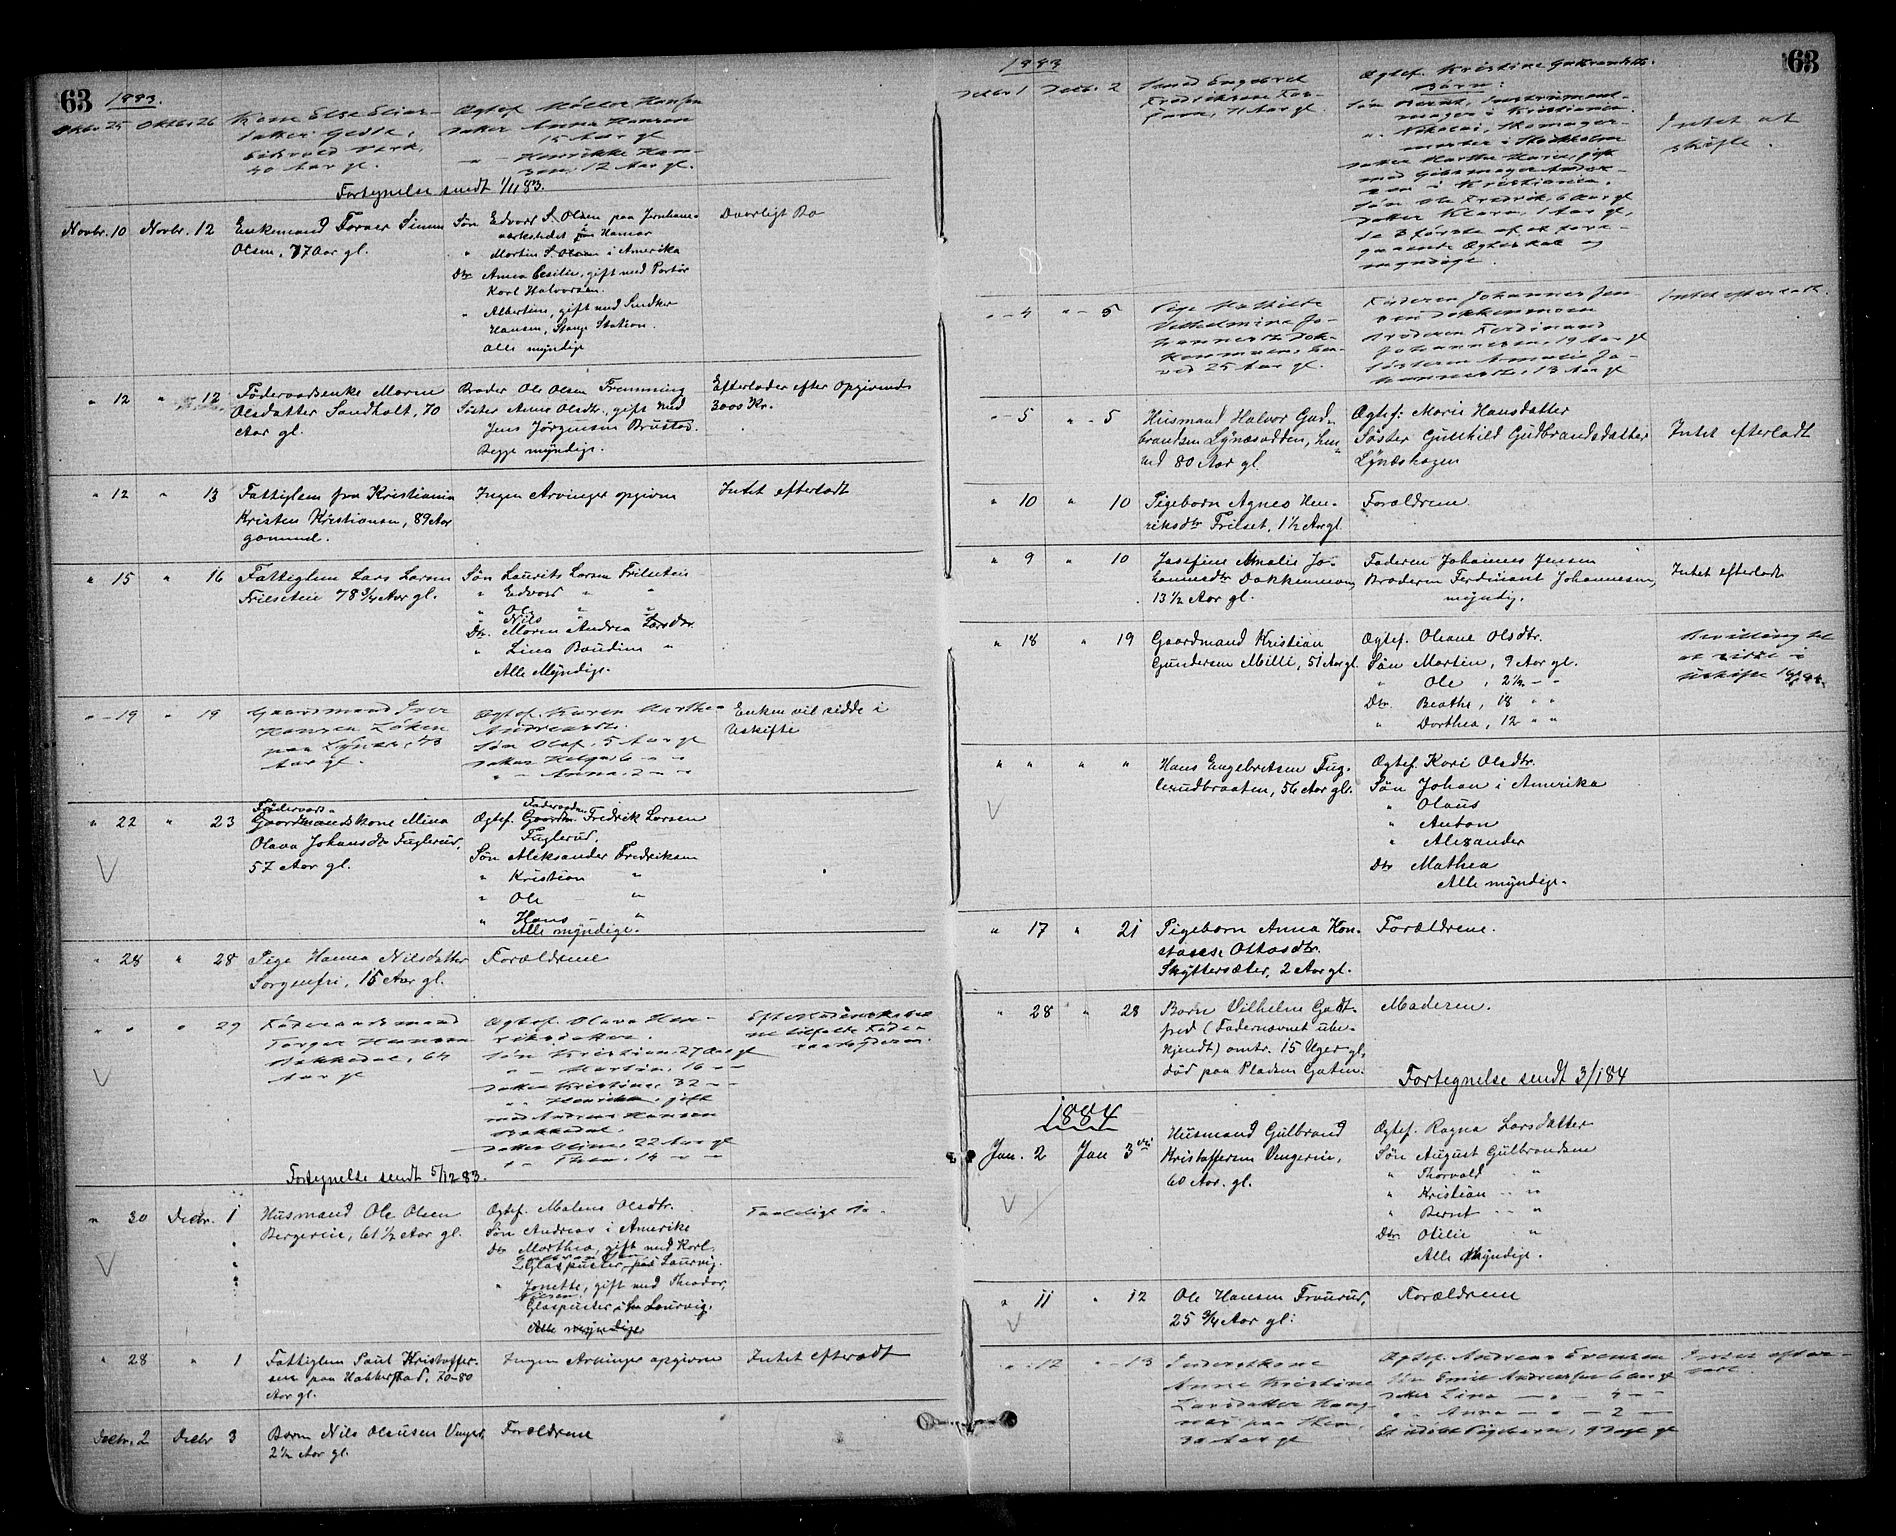 63
1883.
Oktbr. 25 Oktbr. 26 Kone Else
40 Aar gl.
Ægtef. Møller Hansen
Datter Anna Hansen
15 Aar gl
12 Aar gl.
Fortegnelse sendt 1/11 83.
Novbr. 10 Novbr. 12 Enkemand Farver Simen
Olsen, 77 Aar gl.
Søn Edvard S. Olsen paa Jernbane-
værkstedet paa Hamar
" Martin S. Olsen i Amerika
Dtr Anna Cesilie, gift med Portør
Karl Halvorsen.
" Albertine, gift med Snedker
Hansen, Stange Station.
Alle myndige
Daarligt Bo
" 12 " 12 Føderaadsenke Maren
Olsdatter Sandholt, 70
Aar gl.
Broder Ole Olsen Fremming
Søster Anne Olsdtr., gift med
Jens Jørgensen Brustad.
Begge myndige.
Efterlader efter Opgivende
3000 Kr.
" 12 " 13 Fattiglem fra Kristiania
Kristen Kristiansen, 89 Aar
gammel.
Ingen Arvinger opgivne
Intet efterladt
" 15 " 16 Fattiglem Lars Larsen
Frilseteie 78 3/4 Aar gl.
Søn Laurits Larsen Frilseteie
" Edvard " "
" Ole " "
Nils
Dtr. Maren Andrea Larsdtr.
" Lina Paudine "
Alle Myndige.
" - 19 " 19 Gaardmand Iver
Hansen Løken
Aar gl.
Ægtef. Karen Marthe
Andreasdtr.
Søn Olaf, 5 Aar gl
Datter Helga, 6 " "
" - Anna, 2 - "
Enken vil sidde i
Uskifte
" 22 " 23 Føderaads-
Gaardmandskone Mina
Olava Johansdtr Fuglerud,
57 Aar gl.
Føderaadsm.
Ægtef. Gaardm. Fredrik Larsen
Fuglerud.
Søn Aleksander Fredriksen
" Kristian "
" Ole - "
" Hans - "
Alle myndige.
" 28 " 28 Pige Hanna Nilsdatter
Sorgenfri, 15 Aar gl.
Forældrene
" " " 29 Føderaadsmand
Torger Hansen
Bakkedal, 64
Aar gl
Ægtef. Olava Hen-
riksdatter.
Søn Kristian 27 Aar gl
" - Martin, 16 - -
Datter Kristine, 32 - -
" Henrikke, gift
med Andreas Hansen
Bakkedal.
22 Aar gl
Fortegnelse sendt 5/12 83.
" 30 Decbr. 1 Husmand Ole Olsen
Bergereie, 61 1/2 Aar gl.
Ægtef. Malene Olsdtr.
Søn Andreas i Amerika
Dtr Marthea, gift med Karl
Glaspuster, paa Laurvig.
" Jonette, gift med Theodor
Glaspuster i Laurvig.
Alle myndige
" 28 " 1 Fattiglem Paul Kristoffer-
sen paa Habberstad, 70-80
Aar gl.
Ingen Arvinger opgivne
Intet efterladt
Decbr. 2 Decbr 3 Barn Nils Olausen Unger,
2 1/2 Aar gl.
Forældrene
63
1883
Decbr 1 Decbr. 2 Smed Engebret
Fredriksen
71 Aar gl.
Ægtef. Kristine Gulbrandsdtr.
Børn:
Søn Bernt, Instrument-
mager i Kristiania
" Nikolai, Skomager-
mester i Stockholm
Datter Marthe Marie, gift
med Gibsmager
i Kristiania.
Søn Ole Fredrik, 6 Aar gl
Datter Klara, 1 Aar gl,
de 3 første af et fore-
gaaende Ægteskab og
myndige.
Intet at
skifte.
" - 4 " - 5 Pige Mathilde
Vilhelmine Jo-
hannesdtr Dok-
kenmoen, hen-
ved 25 Aar gl.
Faderen Johannes Jen-
sen Dokkenmoen
Broderen Ferdinand
Johannesen, 19 Aar gl
Søsteren Amalie Jo-
hannesdtr, 13 Aar gl
Intet efterladt.
" - 5 " - 5 Husmand Halvor Gud-
brandsen Lynæsodden, hen-
ved 80 Aar gl.
Ægtef. Marie Hansdatter
Søster Gunhild Gudbrandsdatter
Lynæshagen
Intet efterladt
" 10 " 10 Pigebarn Agnes Hen-
riksdtr Frilset, 1 1/2 Aar gl.
Forældrene
" 9 " 10 Josefine Amalie Jo-
hannesdtr Dokkenmoen,
13 1/2 Aar gl.
Faderen Johannes Jensen
Broderen Ferdinant Johannesen,
myndig.
Intet efterladt
" 18 " 19 Gaardmand Kristian
Gundersen Mille, 51 Aar gl.
Ægtef. Oleane Olsdtr.
Søn Martin, 9 Aar gl.
" Ole , 2 1/2 - -
Dtr. Beathe, 18 " "
" Dorthea, 12 " "
Bevilling til
at sidde i
uskifte
" " " " Hans Engebretsen Fug-
lerudbraaten, 56 Aar gl.
Ægtef. Kari Olsdtr.
Søn Johan i Amerika
" Olaus
" Anton
" Alexander
Dtr Mathea
Alle myndige.
" 17 " 21 Pigebarn Anna Kon-
stance Ottosdtr.
Skyttersæter, 2 Aar gl.
Forældrene.
" 28 " 28 Barn Vilhelm Gott-
fred (Fadernavnet ube-
kjendt) omtr. 15 Uger gl,
død paa Pladsen Gaten.
Moderen.
Fortegnelse sendt 3/1 84
1884
Jan. 2 Jan 3die Husmand Gulbrand
Kristoffersen Vengereie,
60 Aar. gl.
Ægtef. Ragna Larsdatter
Søn August Gulbrandsen
" Thorvald " "
" Kristian " "
" Bernt " "
Dtr. Otilie "
Alle Myndige.
" 11 " 12 Ole Hansen Fraurud,
25 3/4 Aar gl.
Forældrene
" - 12 " - 13 Inderstkone
Anne Kristine
Larsdatter
Aar gl
Ægtef. Andreas Evensen
Søn Emil Andreassen 6 Aar gl
Datter Lina - " - 4 - -
" " Anna - " - 2 - -
Et udøbt Pigebarn, 9 Dage gl
Intet efter-
ladt.